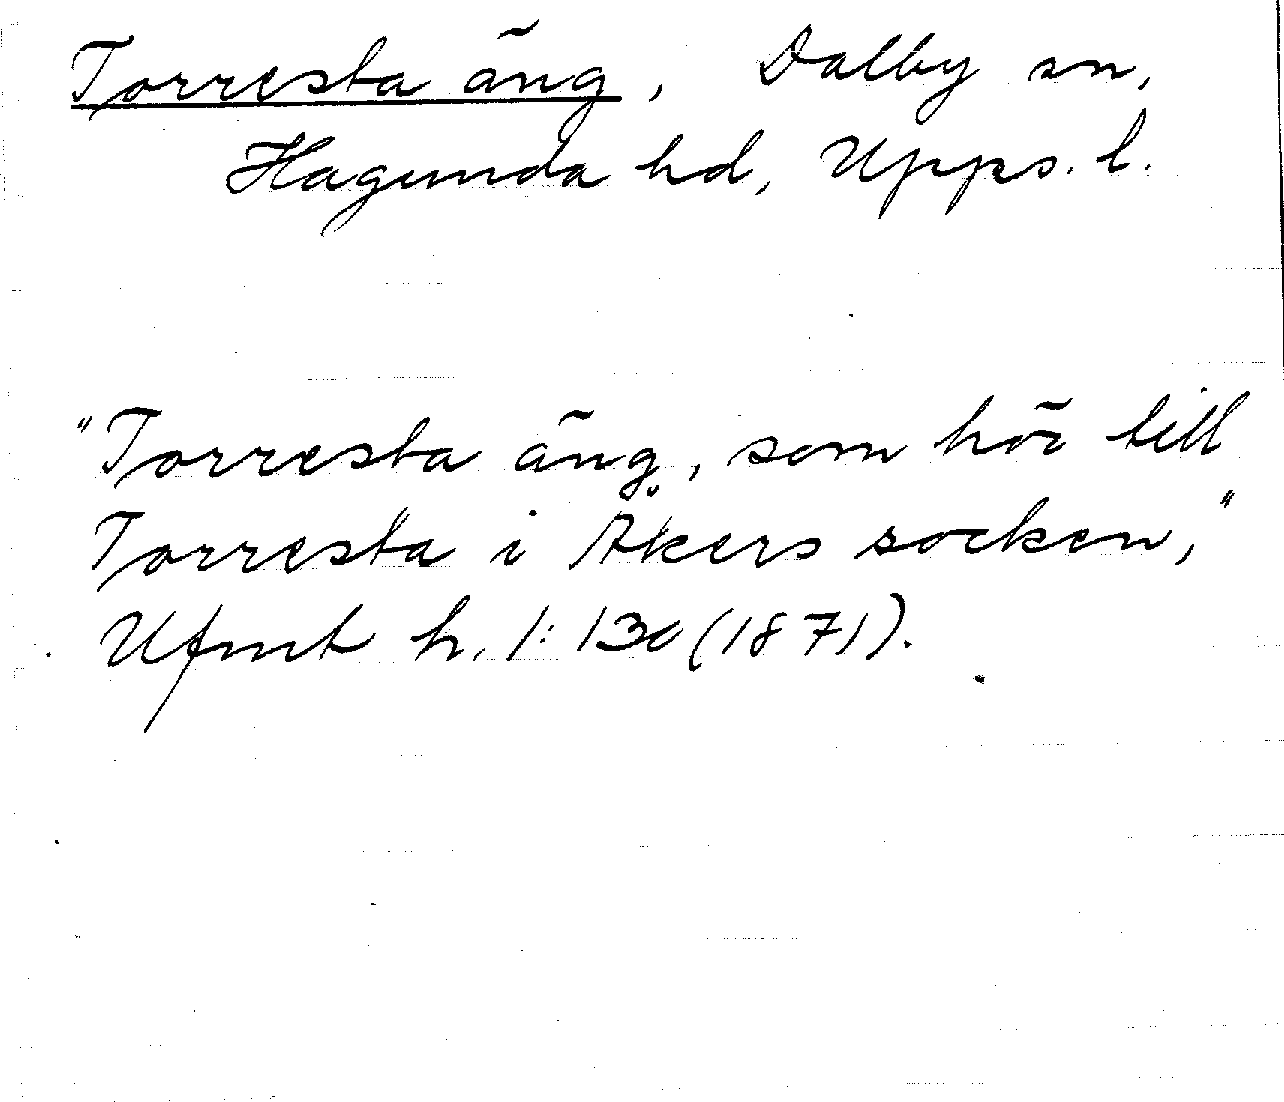 Torresta äng, Dalby sn,
Hagunda hd, Upps. l.
"Torresta äng, som hör till
Torresta i Åkers socken,"
Ufmt h. 1: 130 (1871).